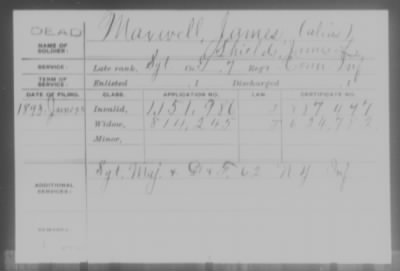 DEAD
NAME OF SOLDIER: Maxwell, James (alias)
Shields, James
SERVICE: Late rank, Sgt Co. 7 Regt. Conn Inf
TERM OF SERVICE: Enlisted , 1 Discharged
DATE OF FILING. CLASS. APPLICATION NO. LAW. CERTIFICATE NO.
1893 Invalid, 1,151,986
Widow, 814,245
Minor,
ADDITIONAL SERVICES: Sgt. Maj. & F. 62 N Y Inf
REMARKS: